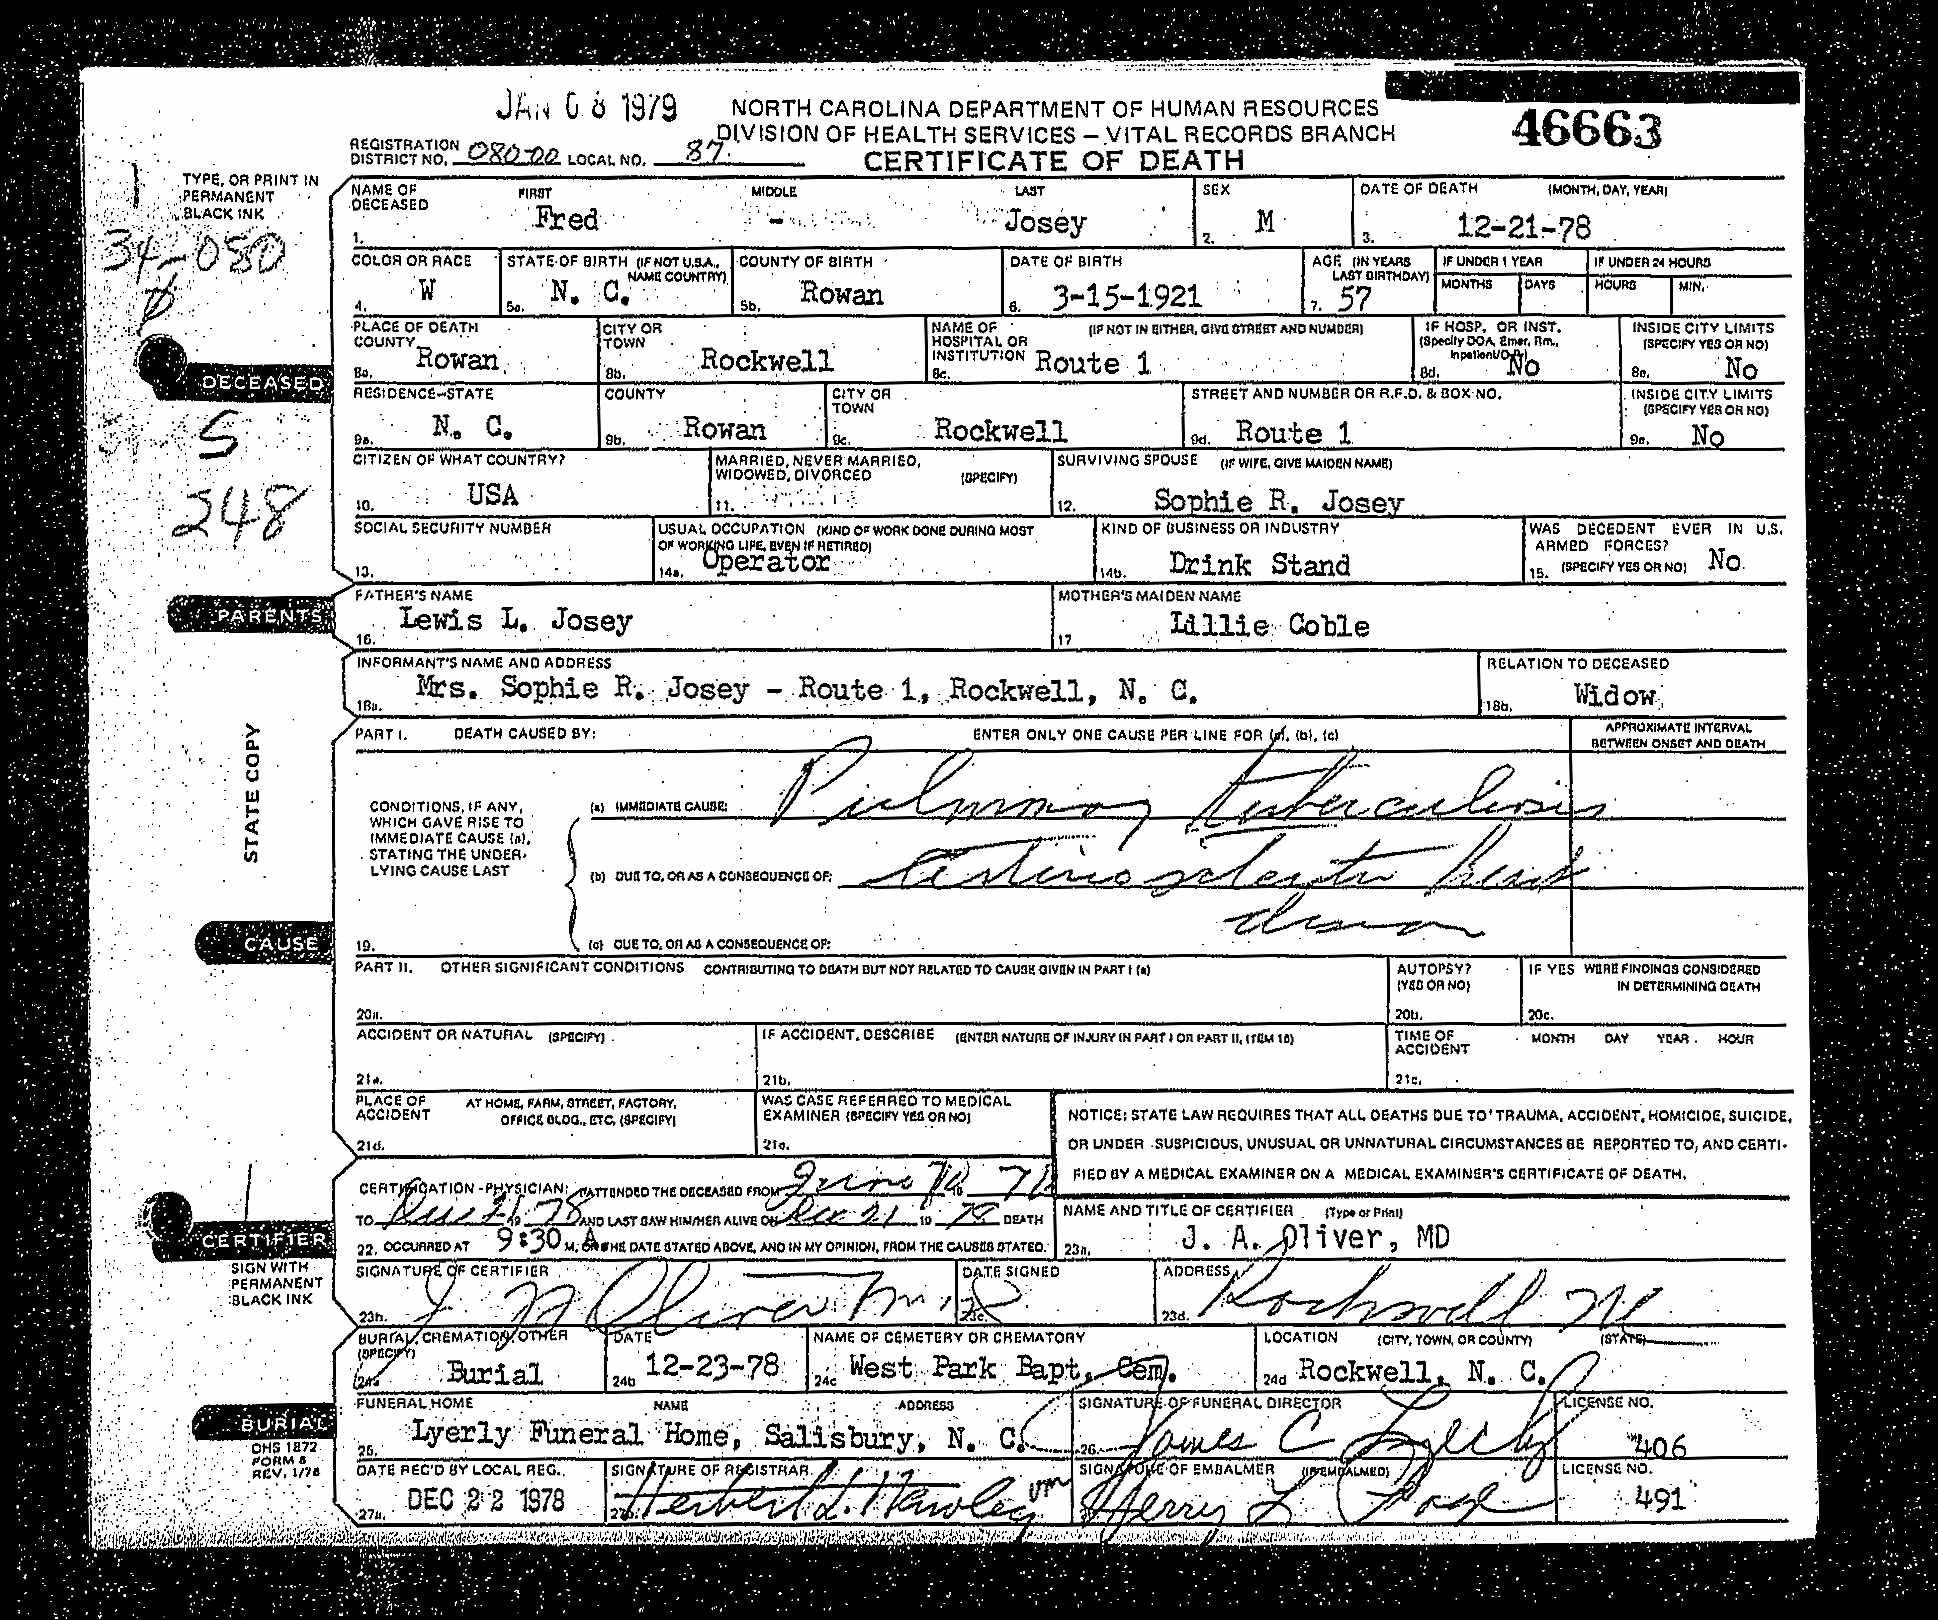 JAN 08 1979
NORTH CAROLINA DEPARTMENT OF HUMAN RESOURCES
DIVISION OF HEALTH SERVICES – VITAL RECORDS BRANCH
CERTIFICATE OF DEATH
46663
REGISTRATION DISTRICT NO. 080-00 LOCAL NO. 87
TYPE, OR PRINT IN
PERMANENT
BLACK INK
34-080
NAME OF DECEASED FIRST MIDDLE LAST
1. Fred - Josey
SEX
2. M
DATE OF DEATH (MONTH, DAY, YEAR)
3. 12-21-78
COLOR OR RACE
4. W
STATE OF BIRTH (IF NOT U.S.A., NAME COUNTRY)
5a. N. C.
COUNTY OF BIRTH
5b. Rowan
DATE OF BIRTH
6. 3-15-1921
AGE (IN YEARS LAST BIRTHDAY)
7. 57
IF UNDER 1 YEAR
MONTHS DAYS
IF UNDER 24 HOURS
HOURS MIN.
DECEASED
PLACE OF DEATH COUNTY
8a. Rowan
CITY OR TOWN
8b. Rockwell
NAME OF HOSPITAL OR INSTITUTION (IF NOT IN EITHER, GIVE STREET AND NUMBER)
8c. Route 1
IF HOSP. OR INST. (Specify DOA, Emer. Rm., Inpatient/O.P.)
8d. No
INSIDE CITY LIMITS (SPECIFY YES OR NO)
8e. No
S
248
RESIDENCE–STATE
9a. N. C.
COUNTY
9b. Rowan
CITY OR TOWN
9c. Rockwell
STREET AND NUMBER OR R.F.D. & BOX NO.
9d. Route 1
INSIDE CITY LIMITS (SPECIFY YES OR NO)
9e. No
CITIZEN OF WHAT COUNTRY?
10. USA
MARRIED, NEVER MARRIED, WIDOWED, DIVORCED (SPECIFY)
11.
SURVIVING SPOUSE (IF WIFE, GIVE MAIDEN NAME)
12. Sophie R. Josey
SOCIAL SECURITY NUMBER
13.
USUAL OCCUPATION (KIND OF WORK DONE DURING MOST OF WORKING LIFE, EVEN IF RETIRED)
14a. Operator
KIND OF BUSINESS OR INDUSTRY
14b. Drink Stand
WAS DECEDENT EVER IN U.S. ARMED FORCES?
15. (SPECIFY YES OR NO) No
PARENTS
FATHER'S NAME
16. Lewis L. Josey
MOTHER'S MAIDEN NAME
17 Lillie Coble
INFORMANT'S NAME AND ADDRESS
18a. Mrs. Sophie R. Josey - Route 1, Rockwell, N. C.
RELATION TO DECEASED
18b. Widow
STATE COPY
CAUSE
PART I. DEATH CAUSED BY: ENTER ONLY ONE CAUSE PER LINE FOR (a), (b), (c)
APPROXIMATE INTERVAL BETWEEN ONSET AND DEATH
CONDITIONS, IF ANY,
WHICH GAVE RISE TO
IMMEDIATE CAUSE (a),
STATING THE UNDER-
LYING CAUSE LAST
(a) IMMEDIATE CAUSE: Pulmonary tuberculosis
(b) DUE TO, OR AS A CONSEQUENCE OF: heart
disease
19. (c) DUE TO, OR AS A CONSEQUENCE OF:
PART II. OTHER SIGNIFICANT CONDITIONS CONTRIBUTING TO DEATH BUT NOT RELATED TO CAUSE GIVEN IN PART I (a)
20a.
AUTOPSY? (YES OR NO)
20b.
IF YES WERE FINDINGS CONSIDERED IN DETERMINING DEATH
20c.
ACCIDENT OR NATURAL (SPECIFY)
21a.
IF ACCIDENT, DESCRIBE (ENTER NATURE OF INJURY IN PART I OR PART II, ITEM 18)
21b.
TIME OF ACCIDENT MONTH DAY YEAR HOUR
21c.
PLACE OF ACCIDENT AT HOME, FARM, STREET, FACTORY, OFFICE BLDG., ETC. (SPECIFY)
21d.
WAS CASE REFERRED TO MEDICAL EXAMINER (SPECIFY YES OR NO)
21e.
NOTICE: STATE LAW REQUIRES THAT ALL DEATHS DUE TO TRAUMA, ACCIDENT, HOMICIDE, SUICIDE,
OR UNDER SUSPICIOUS, UNUSUAL OR UNNATURAL CIRCUMSTANCES BE REPORTED TO, AND CERTI-
FIED BY A MEDICAL EXAMINER ON A MEDICAL EXAMINER'S CERTIFICATE OF DEATH.
CERTIFIER
SIGN WITH
PERMANENT
BLACK INK
CERTIFICATION - PHYSICIAN: I ATTENDED THE DECEASED FROM June 19
TO Dec 21 19 78 AND LAST SAW HIM/HER ALIVE ON Dec 21 19 78 DEATH
22. OCCURRED AT 9:30 A M, ON THE DATE STATED ABOVE, AND IN MY OPINION, FROM THE CAUSES STATED.
NAME AND TITLE OF CERTIFIER (Type or Print)
23a. J. A. Oliver, MD
SIGNATURE OF CERTIFIER
23b. J A Oliver M.D.
DATE SIGNED
23c.
ADDRESS
23d. Rockwell NC
BURIAL
DHS 1872
FORM 8
REV. 1/78
BURIAL, CREMATION, OTHER (SPECIFY)
24a Burial
DATE
24b 12-23-78
NAME OF CEMETERY OR CREMATORY
24c West Park Bapt. Cem.
LOCATION (CITY, TOWN, OR COUNTY) (STATE)
24d Rockwell, N. C.
FUNERAL HOME NAME ADDRESS
25. Lyerly Funeral Home, Salisbury, N. C.
SIGNATURE OF FUNERAL DIRECTOR
26. James C Lyerly
LICENSE NO.
406
DATE REC'D BY LOCAL REG.
27a. DEC 22 1978
SIGNATURE OF REGISTRAR
27b. Herbert L. Hawley
SIGNATURE OF EMBALMER (IF EMBALMED)
Jerry L
LICENSE NO.
491